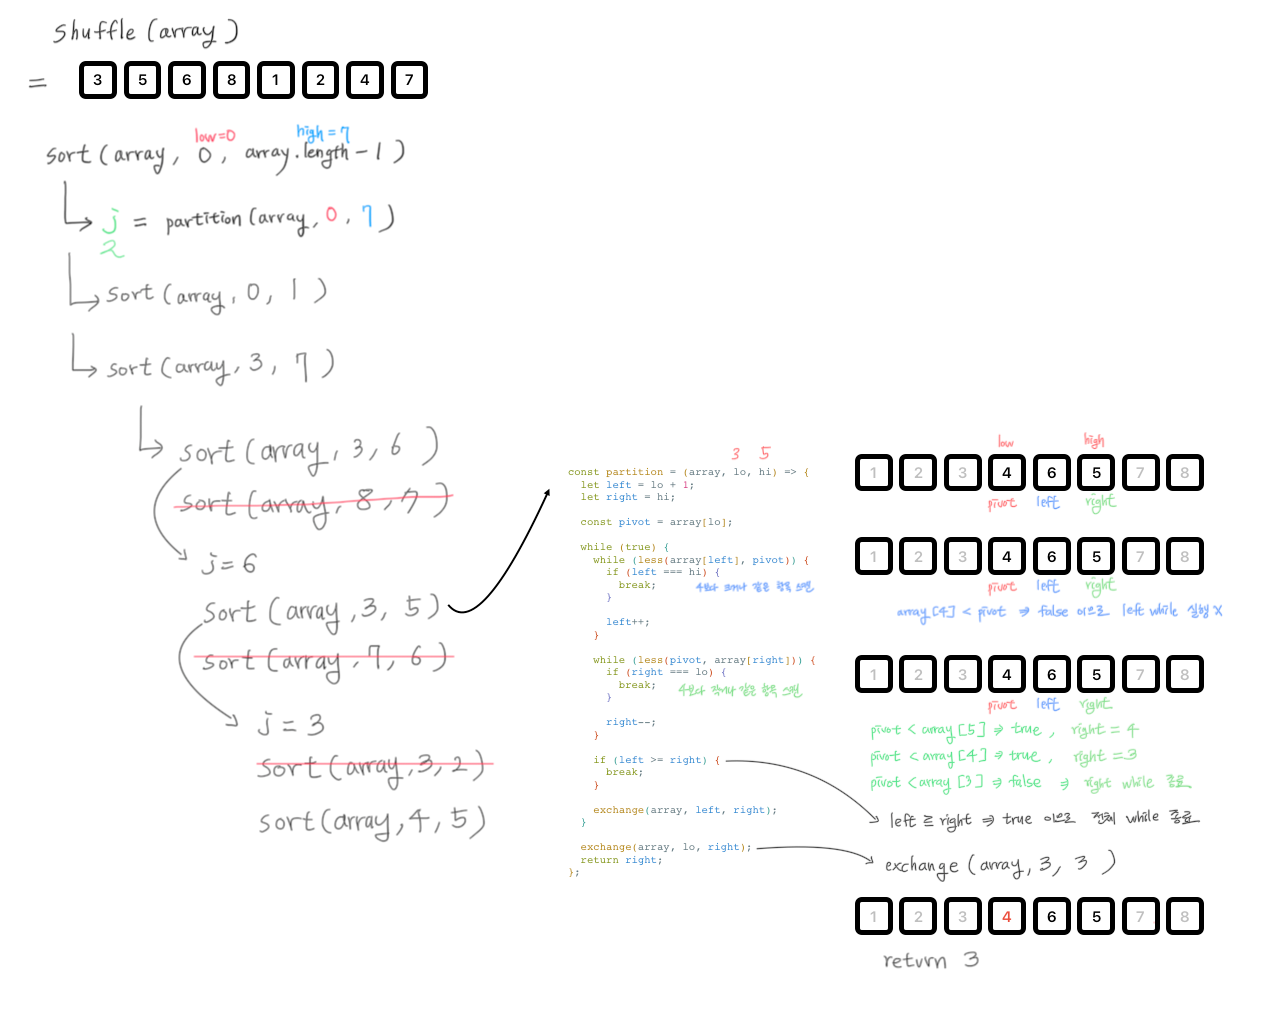 shuffle (array)
= 3 5 6 8 1 2 4 7
low=0 high = 7
sort (array, 0, array.length - 1)
j = partition (array, 0, 7)
2
sort (array, 0, 1)
sort (array, 3, 7)
sort (array, 3, 6)
sort (array, 8, 7)
j = 6
sort (array, 3, 5)
sort (array, 7, 6)
j = 3
sort (array, 3, 2)
sort (array, 4, 5)
3 5
const partition = (array, lo, hi) => {
let left = lo + 1;
let right = hi;
const pivot = array[lo];
while (true) {
while (less(array[left], pivot)) {
if (left === hi) {
break; 4보다 크거나 같은 항목 스캔
}
left++;
}
while (less(pivot, array[right])) {
if (right === lo) {
break; 4보다 작거나 같은 항목 스캔
}
right--;
}
if (left >= right) {
break;
}
exchange(array, left, right);
}
exchange(array, lo, right);
return right;
};
low high
1 2 3 4 6 5 7 8
pivot left right
1 2 3 4 6 5 7 8
pivot left right
array [4] < pivot ⇒ false 이므로 left while 실행 X
1 2 3 4 6 5 7 8
pivot left right
pivot < array [5] ⇒ true, right = 4
pivot < array [4] ⇒ true, right = 3
pivot < array [3] ⇒ false ⇒ right while 종료
left ≧ right ⇒ true 이므로 전체 while 종료
exchange (array, 3, 3)
1 2 3 4 6 5 7 8
return 3